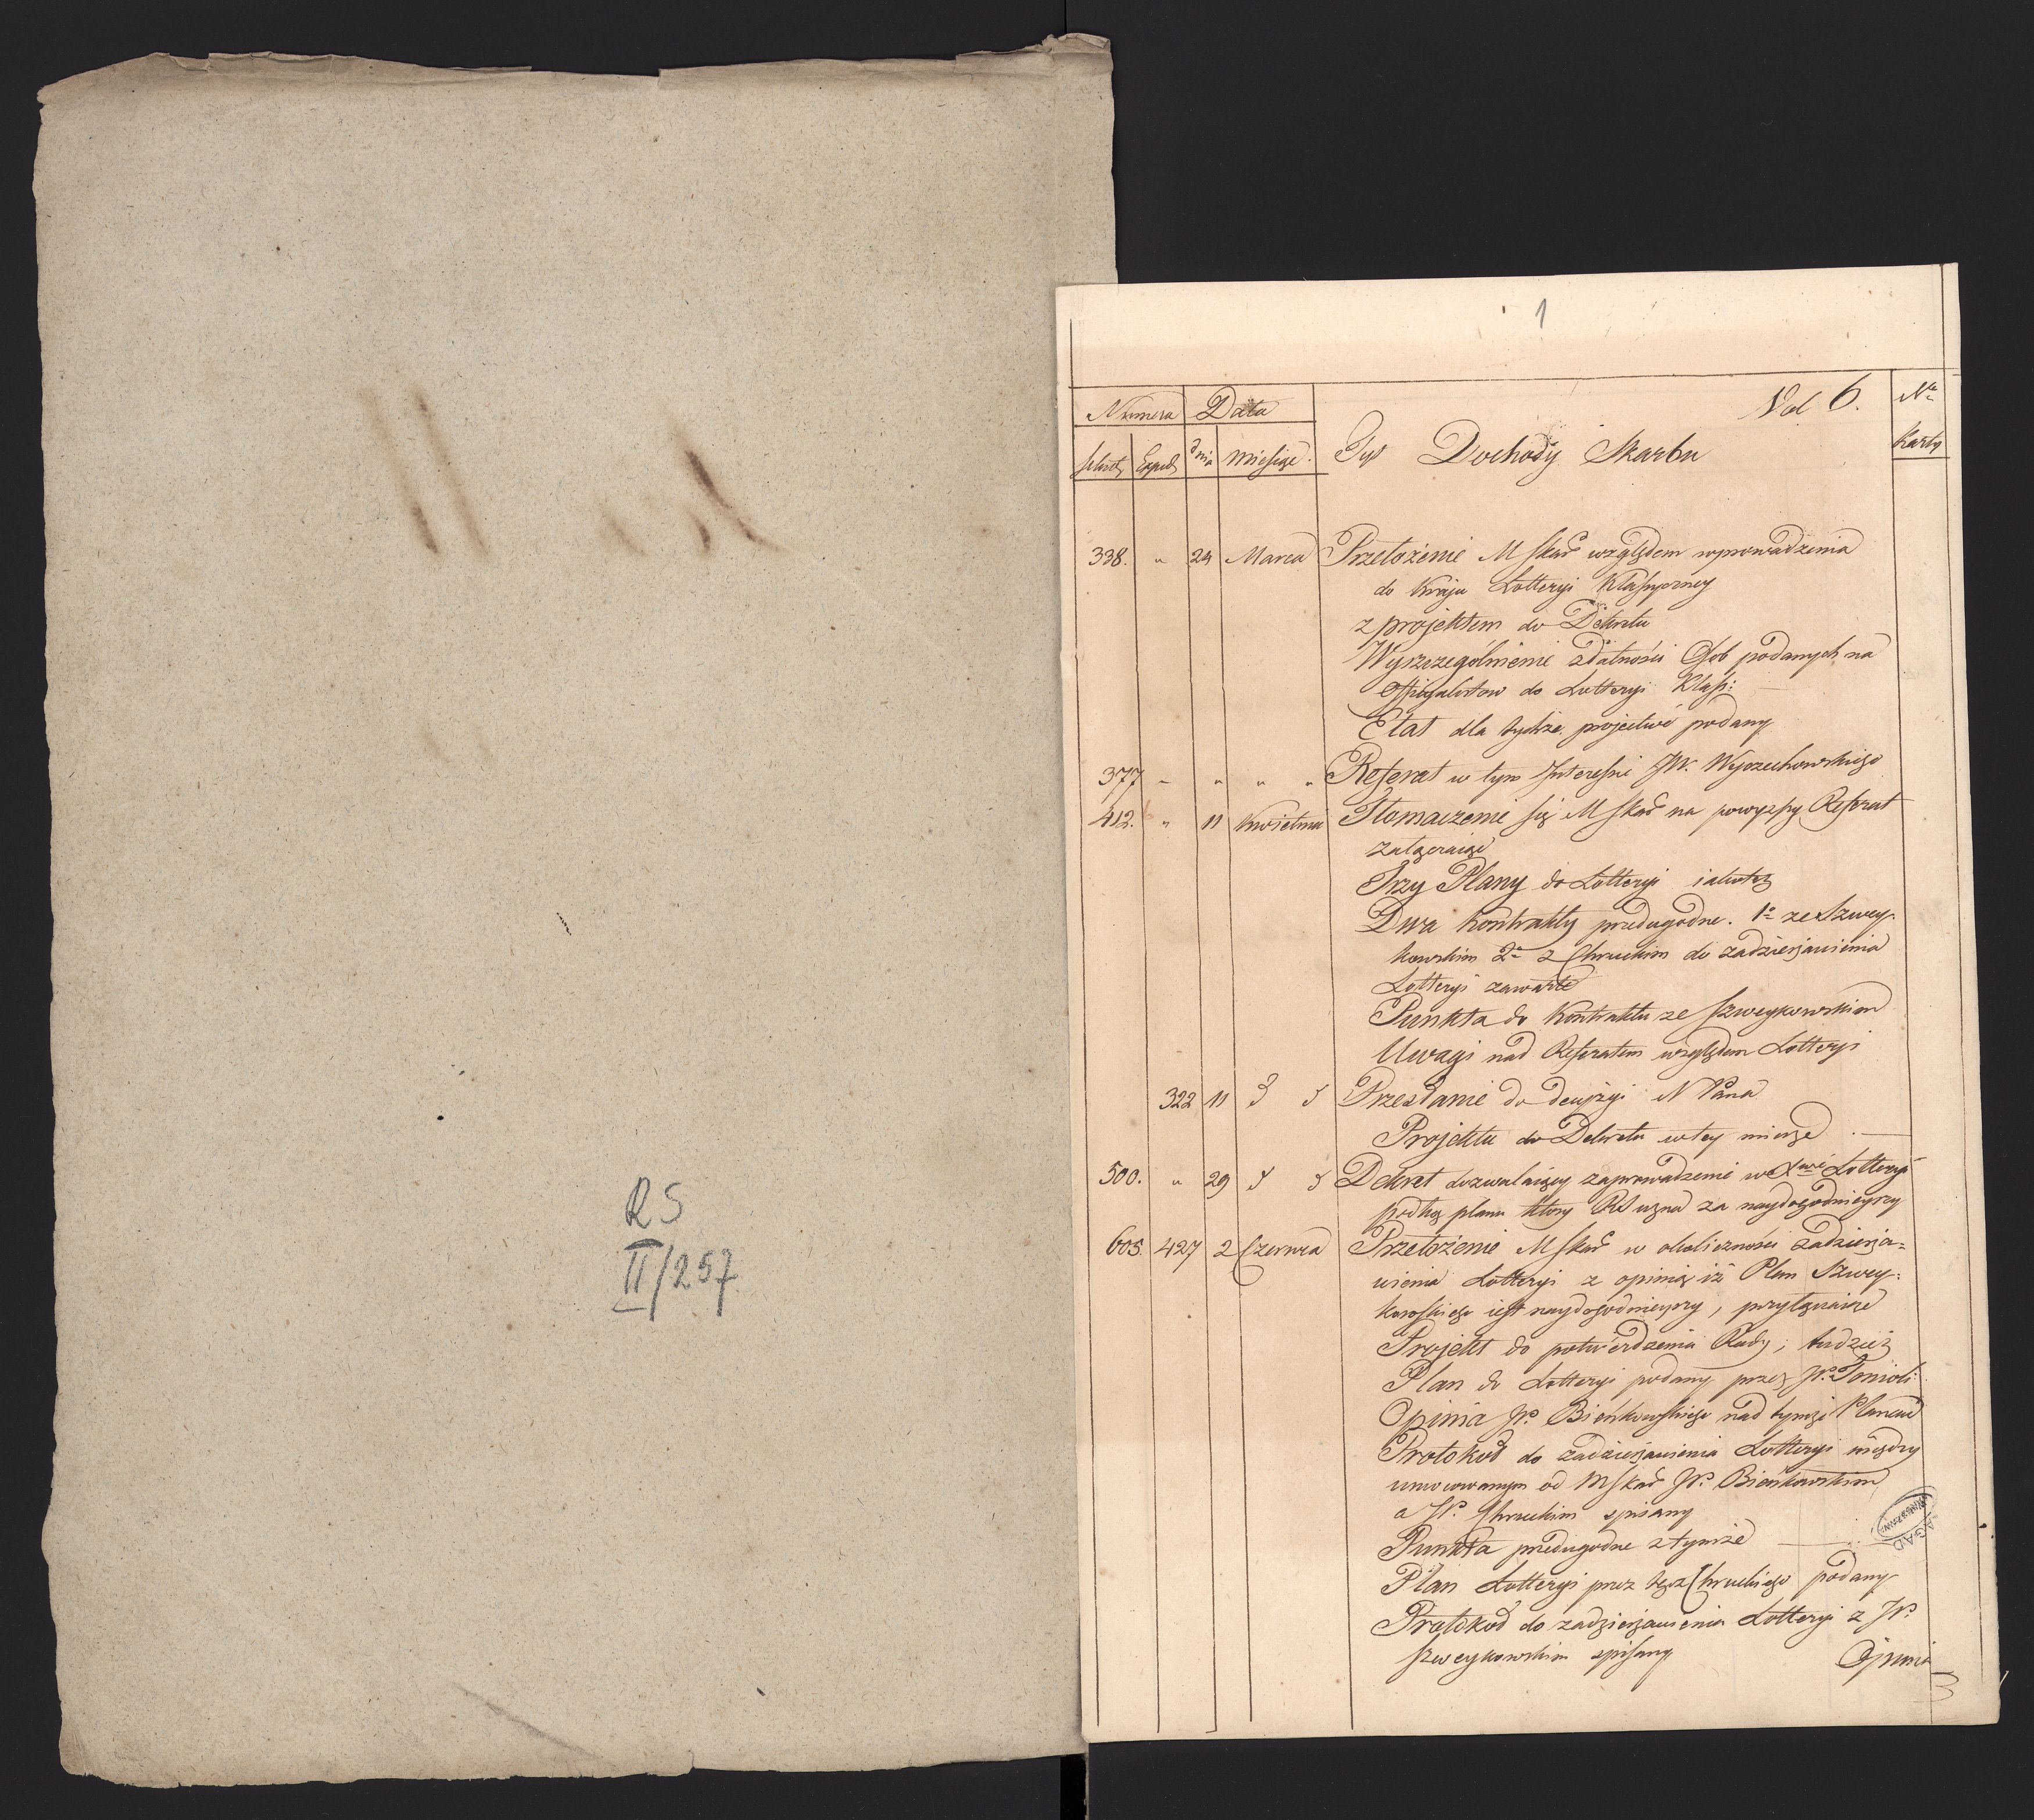 RS
II/257
1
Numera Data Vol 6. No
dnia Miesiąc Tyt Dochody Skarbu Karty
338. " 24 Marca Przełożenie M Skar względem wprowadzenia
do Kraju Lotteryi Klassyczney
z projektem do Dekretu
Wyszczególnienie zdatności Osob podanych na
Officyalistow do Lotteryi Klass:
Etat dla tychże podany
377 " " " " Referat w tym Interessie JW. Wyczechowskiego
412. " 11 Kwietnia Tłomaczenie się M Skar na powyższy Referat
załączaiąc
Trzy Plany do Lotteryi iakoteż
Dwa Kontrakty przedugodne. 1o ze Szwey-
kowskim 2o z Chruckim do zadzierżawienia
Lotteryi zawarte
Punkta do Kontraktu ze Szweykowskim
Uwagi nad Referatem względem Lotteryi
322 11 Przesłanie do decyzyi N Pana
Projektu do Dekretu w tey mierze
500. " 29 Dekret dozwalaiący zaprowadzenie w Lotteryi
podług planu ktory RS uzna za naydogodnieyszy
605. 427 2 Czerwca Przełożenie M Skar w okoliczności zadzierża-
wienia Lotteryi z opinią iż Plan Szwey-
kowskiego iest naydogodnieyszy, przyłączaiąc
Projekt do potwierdzenia Rady, tudzież
Plan do Lotteryi podany przez JP. Tonioli
Opinia JP. Bieńkowskiego nad tymże Planem
Protokoł do zadzierżawienia Lotteryi między
umocowanym od M Skar JP. Bieńkowskim
a JP. Chruckim spisany
Punkta przedugodne z tymże
Plan Lotteryi przez tegoż Chruckiego podany
Protokoł do zadzierżawienia Lotteryi z JP.
Szweykowskim spisany Opinia
AGAD